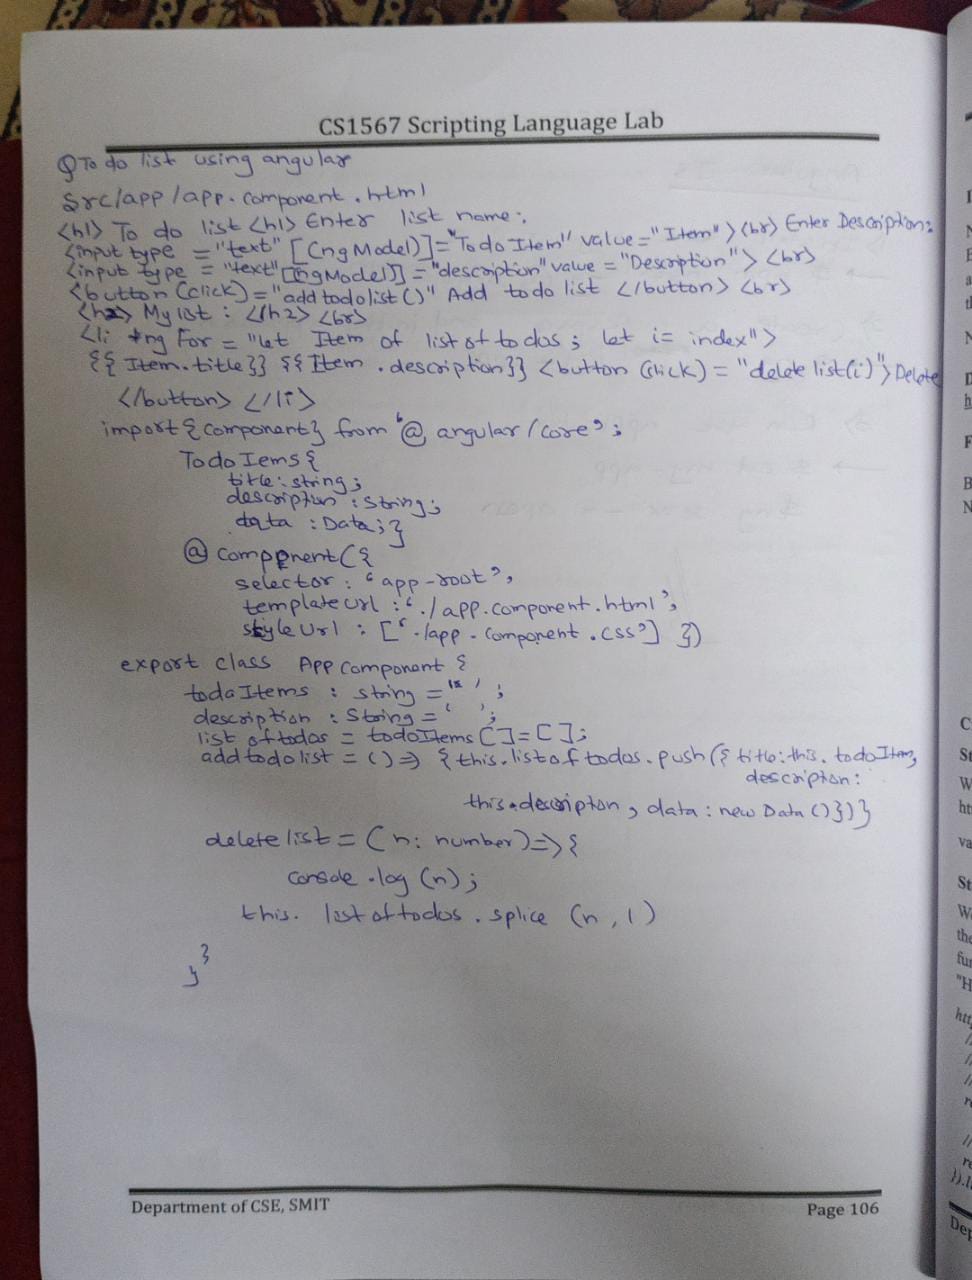 CS1567 Scripting Language Lab
Q To do list using angular
src/app/app.component.html
<h1> To do list <h1> Enter list name:
<input type = "text" [(ngModel)]="Todo Item" value="Item"> <br> Enter Description:
<input type = "text" [(ngModel)] = "description" value = "Description"> <br>
<button (click)="addtodolist()" Add todo list </button> <br>
<h2> My list : </h2> <br>
<li *ng For = "let Item of listoftodos ; let i= index">
{{ Item.title}} {{ Item .description}} <button (click) = "deletelist(i)"> Delete
</button> </li>
import {component} from '@ angular/core';
Todo Iems {
title: string;
description : String;
data : Data; }
@ Component ({
selector : 'app-root',
templateUrl : './app.component.html',
styleUrl : ['./app.component.css'] })
export class App Component {
todaItems : string = ' ';
description : String = ' ';
listoftodos = todoItems []=[];
addtodolist = () => { this.listoftodos.push({ title:this.todoItem,
description:
this.description, data : new Data ()})}
deletelist = (n: number) => {
console.log (n);
this. listoftodos . splice (n , 1)
}
}
Department of CSE, SMIT
Page 106